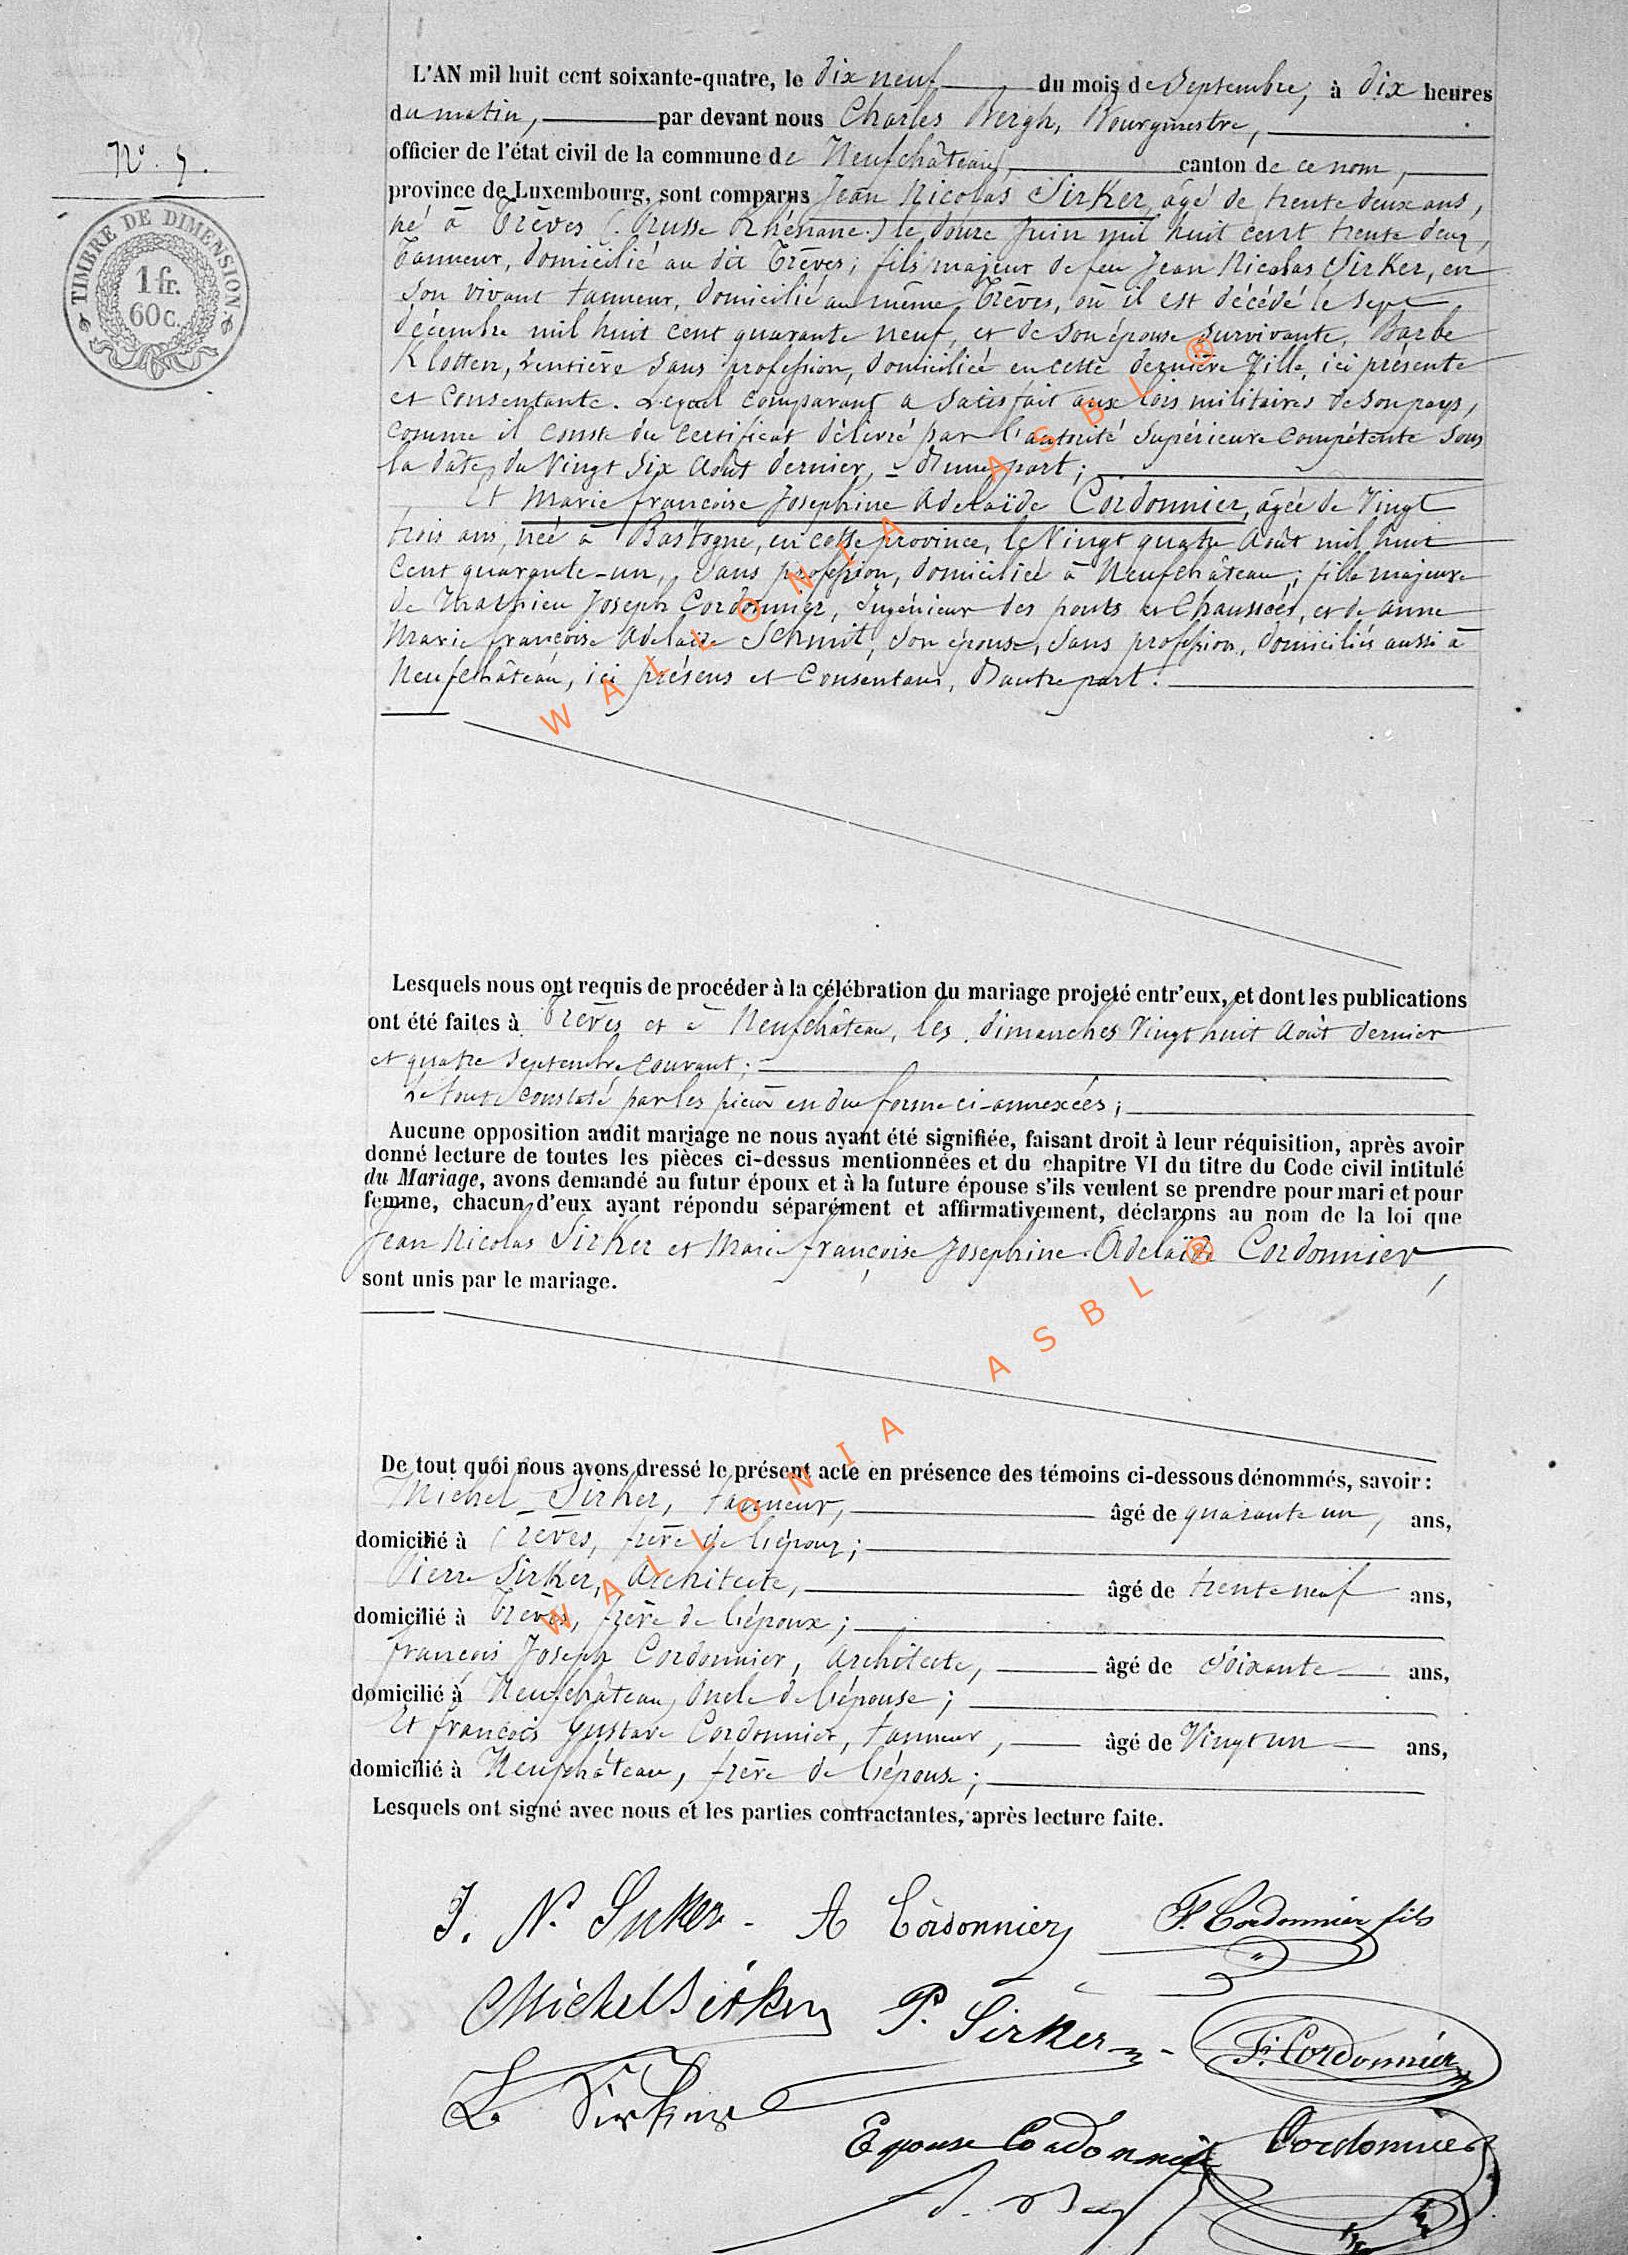 L'AN mil huit cent soixante-quatre, le dix neuf du mois de Septembre, à dix heures
du matin, par devant nous Charles Bergh, Bourgmestre,
N°.
officier de l'état civil de la commune de Neufchâteau, canton de ce nom,
province de Luxembourg, sont comparus Jean Nicolas Sirker, âgé de trente deux ans,
né à Trèves (Prusse Rhénane) le douze Juin mil huit cent trente deux,
TIMBRE DE DIMENSION.
1 fr.
60 c.
Tanneur, domicilié au dit Trèves; fils majeur de feu Jean Nicolas Sirker, en
son vivant tanneur, domicilié au même Trèves, où il est décédé le sept
décembre mil huit cent quarante neuf, et de son épouse survivante, Barbe
Klotten, rentière sans profession, domiciliée en cette dernière Ville, ici présente
et consentante. Lequel comparant a satisfait aux lois militaires de son pays,
comme il conste du certificat délivré par l'autorité Supérieure Compétente sous
la date du Vingt Six Août dernier, D'une part;
Et Marie françoise Josephine Adelaïde Cordonnier, âgée de Vingt
trois ans, née à Bastogne, en cette province, le Vingt quatre Août mil huit
Cent quarante-un, Sans profession, domiciliée à Neufchâteau; fille majeure
de Mathieu Joseph Cordonnier, Ingénieur des ponts et Chaussées, et de Anne
Marie françoise Adelaïde Schmit, son épouse, Sans profession, domiciliés aussi à
Neufchâteau, ici présens et Consentans, D'autre part.
Lesquels nous ont requis de procéder à la célébration du mariage projeté entr'eux, et dont les publications
ont été faites à Trèves et à Neufchâteau, les dimanches Vingt huit Août dernier
et quatre Septembre courant;
Le tout constaté par les pièces en due forme ci-annexées;
Aucune opposition audit mariage ne nous ayant été signifiée, faisant droit à leur réquisition, après avoir
donné lecture de toutes les pièces ci-dessus mentionnées et du chapitre VI du titre du Code civil intitulé
du Mariage, avons demandé au futur époux et à la future épouse s'ils veulent se prendre pour mari et pour
femme, chacun d'eux ayant répondu séparément et affirmativement, déclarons au nom de la loi que
Jean Nicolas Sirker et Marie françoise Josephine Adelaïde Cordonnier,
sont unis par le mariage.
De tout quoi nous avons dressé le présent acte en présence des témoins ci-dessous dénommés, savoir :
Michel Sirker, tanneur, âgé de quarante un, ans,
domicilié à Trèves, frère de l'époux;
Pierre Sirker, Architecte, âgé de trente neuf ans,
domicilié à Trèves, frère de l'époux;
françois Joseph Cordonnier, Architecte, âgé de Soixante ans,
domicilié à Neufchâteau, Oncle de l'épouse;
Et françois Gustave Cordonnier, tanneur, âgé de Vingt un ans,
domicilié à Neufchâteau, frère de l'épouse;
Lesquels ont signé avec nous et les parties contractantes, après lecture faite.
J. N. Sirker - A Cordonnier F. Cordonnier fils
Michel Sirker P. Sirker F. Cordonnier
Sirker
Epouse Cordonnier Cordonnier
WALLONIA ASBL ®
WALLONIA ASBL ®